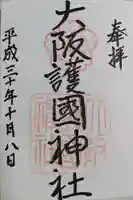 奉拝
大阪護國神社
平成三十年十月八日